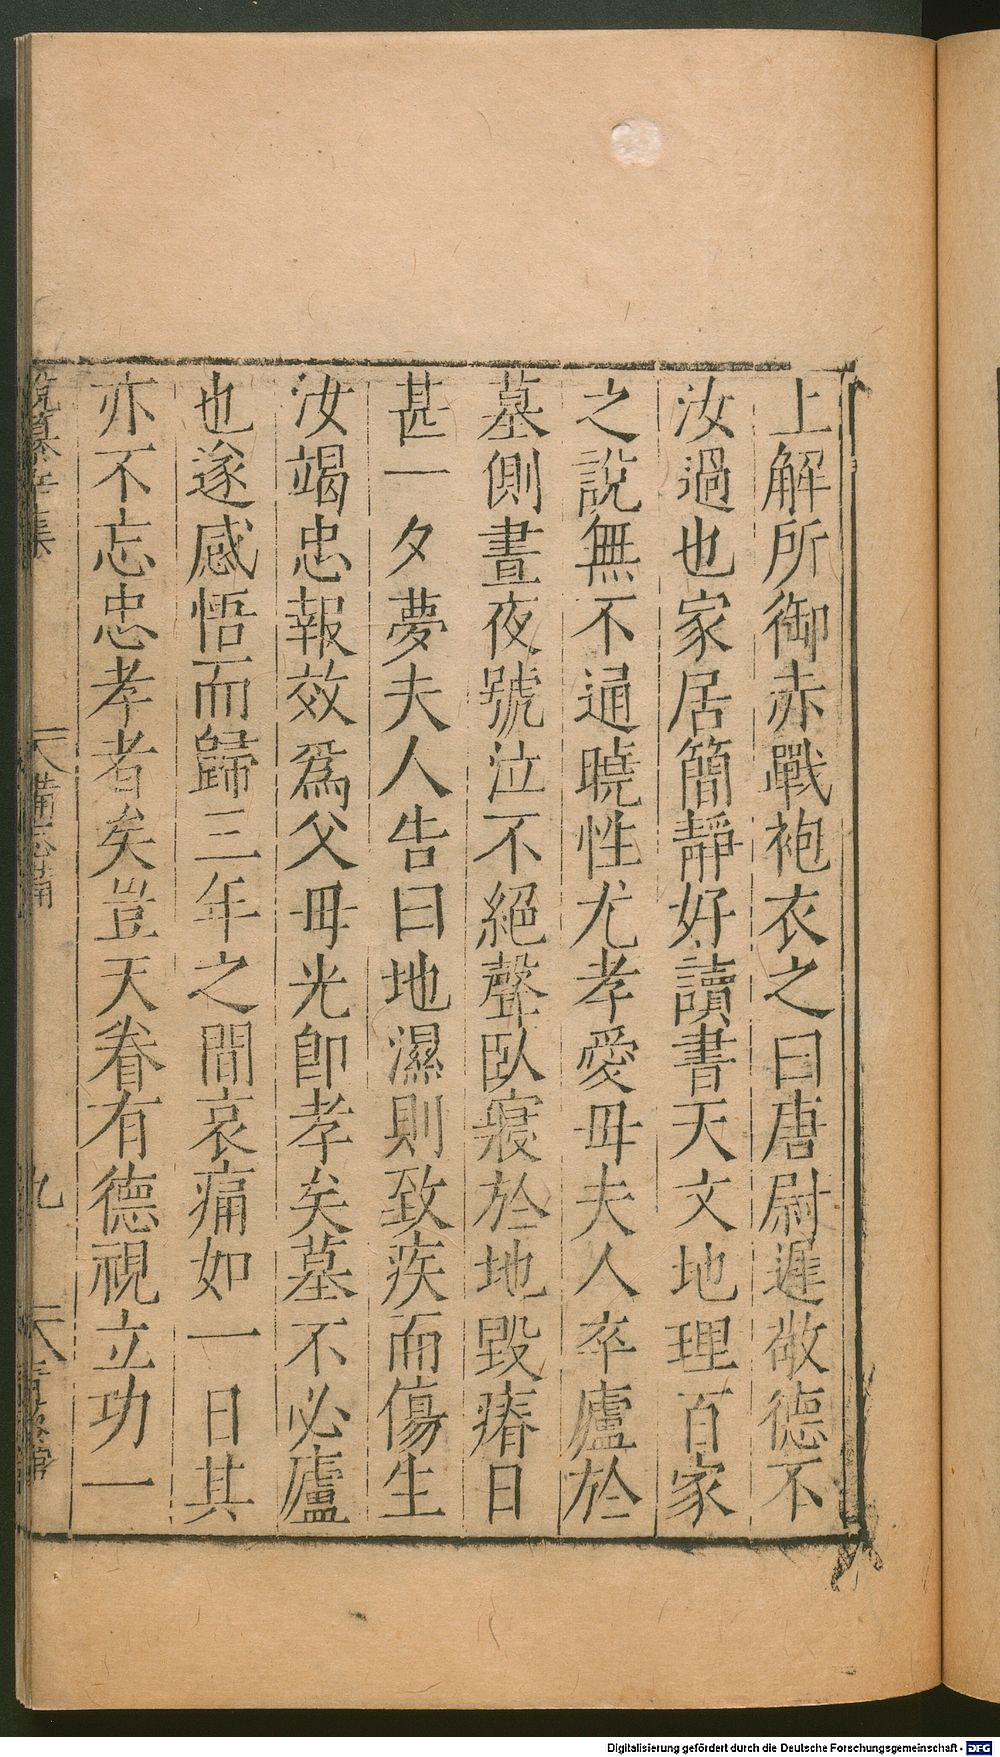 上解所御赤戰袍衣之曰唐尉遲敬德不
汝過也家居簡靜好讀書天文地理百家
之說無不通曉性尤孝愛毋夫人卒廬於
墓側晝夜號泣不絕聲臥寢於地毀瘠日
甚一夕夢夫人告曰地濕則致疾而傷生
汝竭忠報效爲父毋光卽孝矣墓不必廬
也遂感悟而歸三年之間哀痛如一日其
亦不忘忠孝者矣豈天眷有德視立功一
集
備忘
九
Digitalisierung gefördert durch die Deutsche Forschungsgemeinschaft - DFG